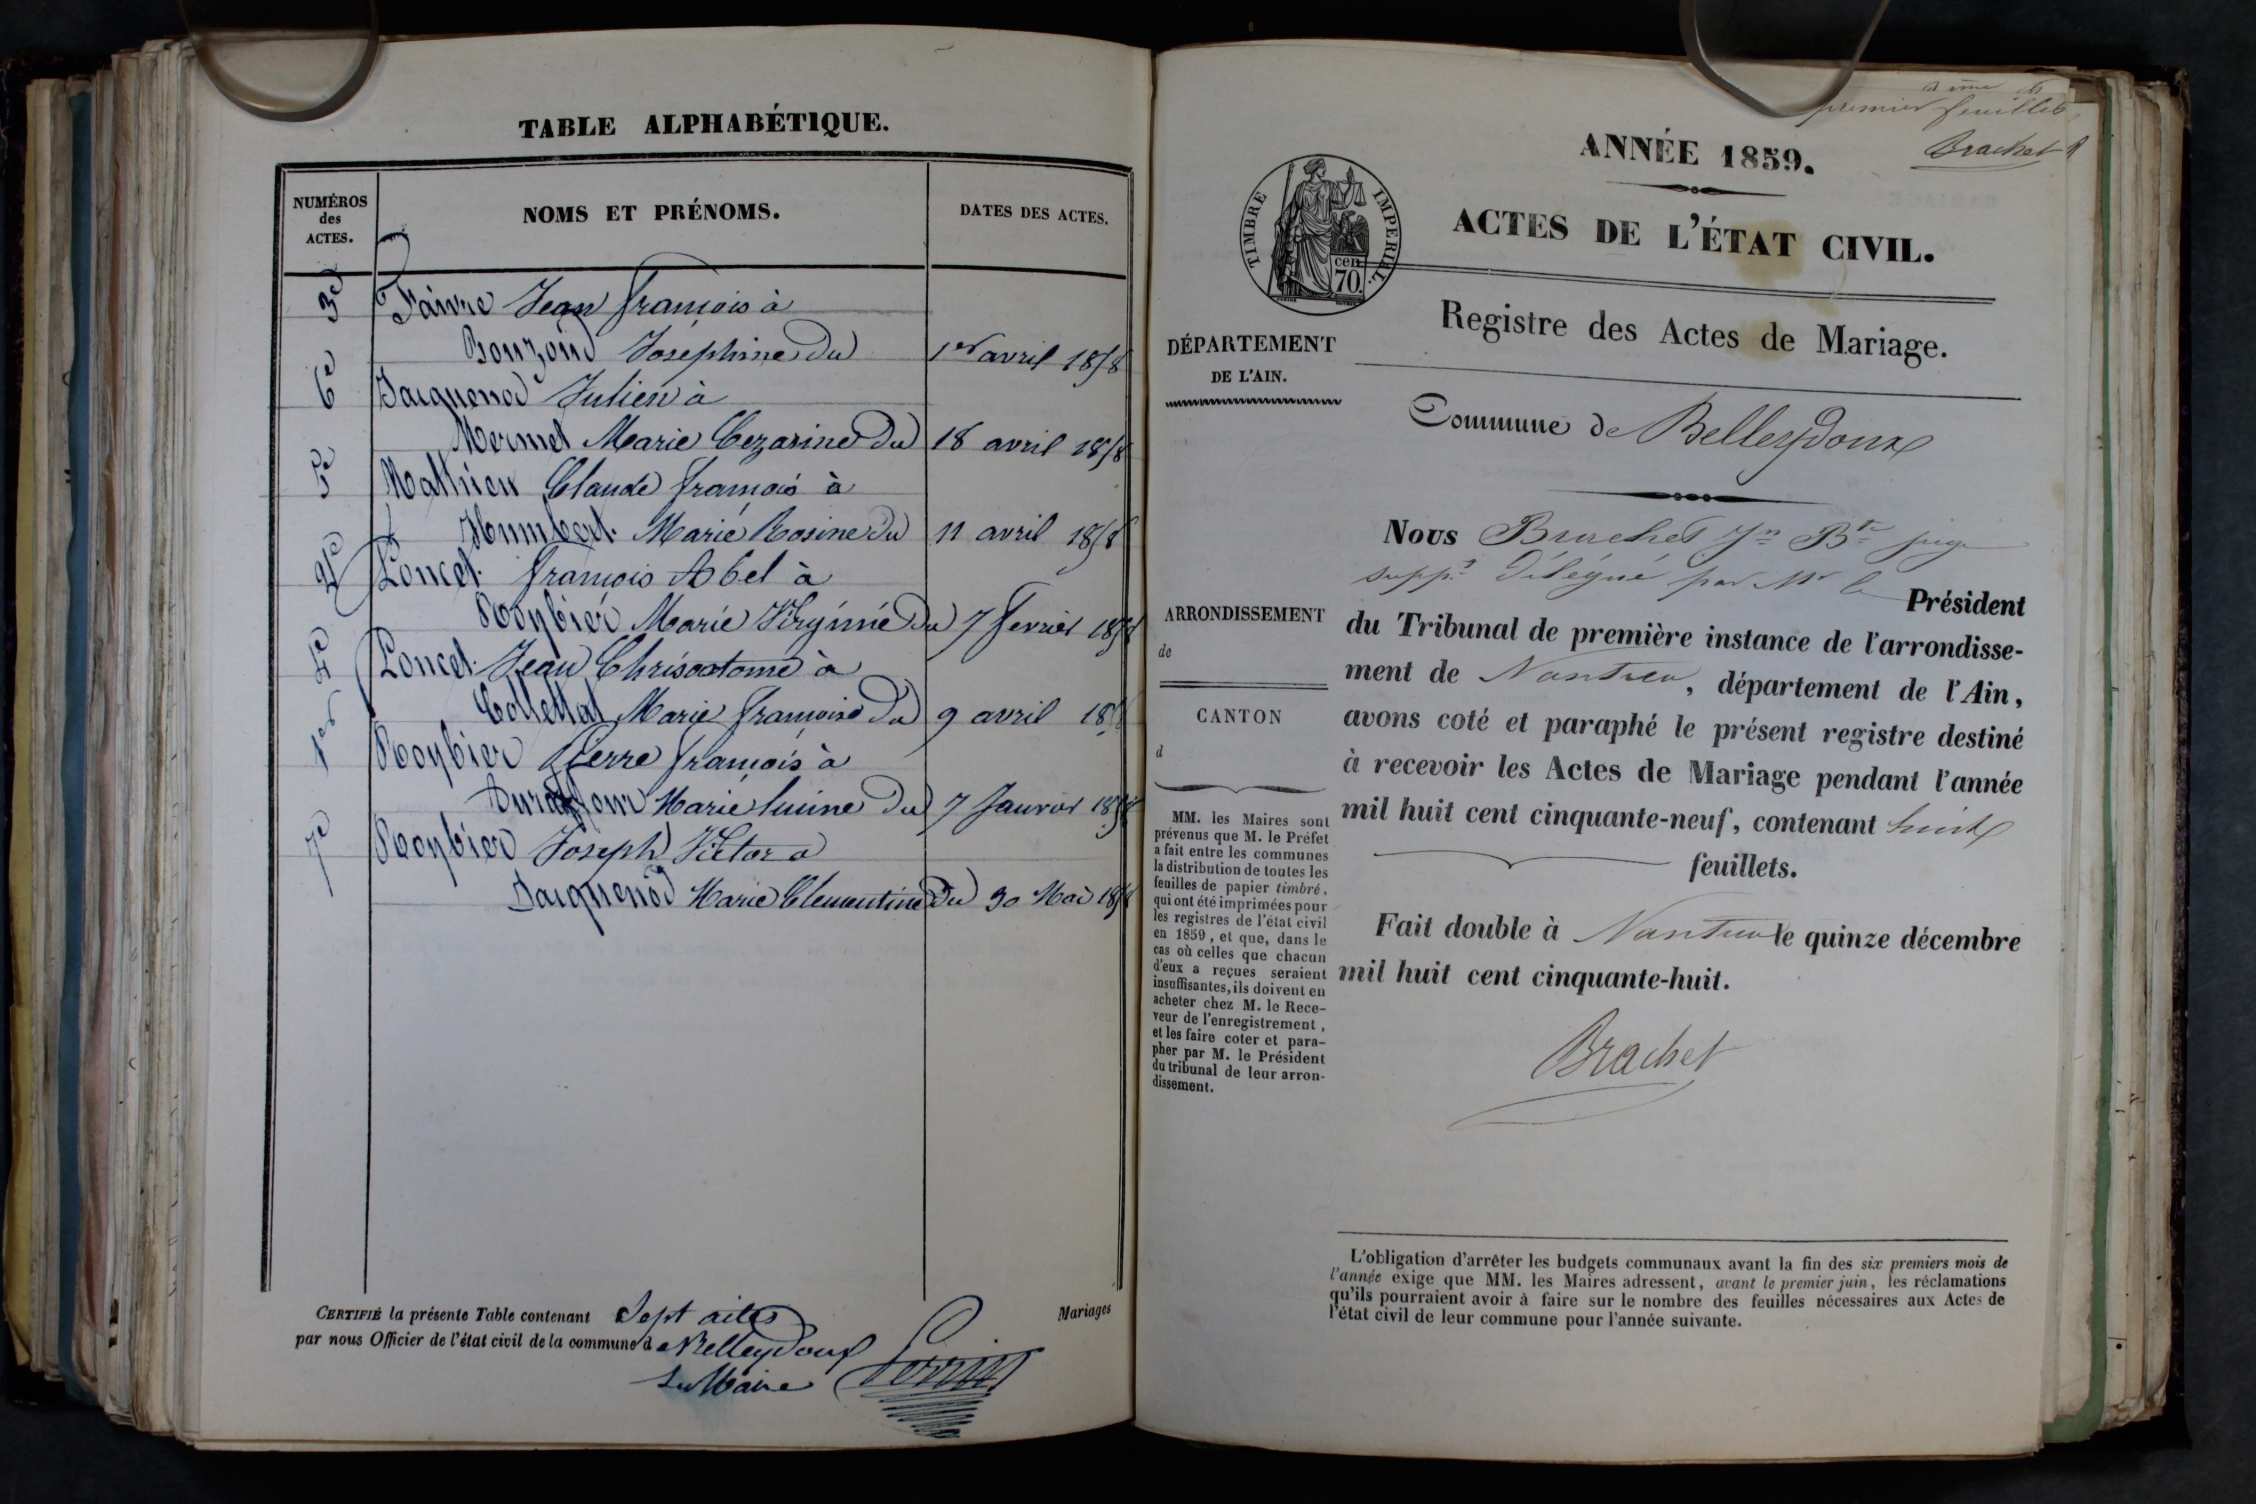 TABLE ALPHABÉTIQUE.
NUMÉROS
des
ACTES.
NOMS ET PRÉNOMS.
DATES DES ACTES.
3e Faivre Jean François à
Bonzond Josephine du 1er avril 1858
6e Jacquenod Julien à
Mermet Marie Cezarine du 18 avril 1858
5e Mathieu Claude François à
Humbert Marie Rosine du 11 avril 1858
2e Poncet François Abel à
Roybier Marie Virginie du 7 fevrier 1858
4e Poncet Jean Chrisostome à
Collettat Marie Françoise du 9 avril 1858
1er Roybier Pierre François à
Marie Lucine du 7 Janvier 1858
7e Roybier Joseph Victor a
Jacquenod Marie Clementine du 30 Mai 1858
CERTIFIÉ la présente Table contenant Sept actes Mariages
par nous Officier de l'état civil de la commune de Belleydoux
Le Maire
premier feuillet
Brachet
ANNÉE 1859.
TIMBRE IMPERIAL.
cen.
70.
ACTES DE L'ÉTAT CIVIL.
Registre des Actes de Mariage.
DÉPARTEMENT
DE L'AIN.
Commune de Belleydoux
Nous Brachet Jn Bte juge
suppt délégué par Mr le Président
du Tribunal de première instance de l'arrondisse-
ment de Nantua, département de l'Ain,
avons coté et paraphé le présent registre destiné
à recevoir les Actes de Mariage pendant l'année
mil huit cent cinquante-neuf, contenant huit
feuillets.
Fait double à Nantua le quinze décembre
mil huit cent cinquante-huit.
Brachet
ARRONDISSEMENT
de
CANTON
d
MM. les Maires sont
prévenus que M. le Préfet
a fait entre les communes
la distribution de toutes les
feuilles de papier timbré,
qui ont été imprimées pour
les registres de l'état civil
en 1859, et que, dans le
cas où celles que chacun
d'eux a reçues seraient
insuffisantes, ils doivent en
acheter chez M. le Rece-
veur de l'enregistrement,
et les faire coter et para-
pher par M. le Président
du tribunal de leur arron-
dissement.
L'obligation d'arrêter les budgets communaux avant la fin des six premiers mois de
l'année exige que MM. les Maires adressent, avant le premier juin, les réclamations
qu'ils pourraient avoir à faire sur le nombre des feuilles nécessaires aux Actes de
l'état civil de leur commune pour l'année suivante.